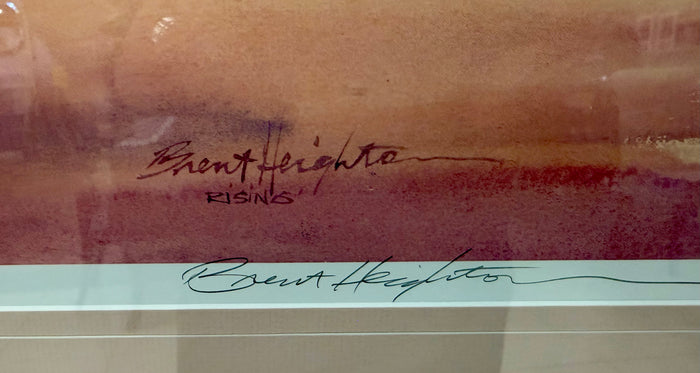 Brent Heighton
RISING
Brent Heighton